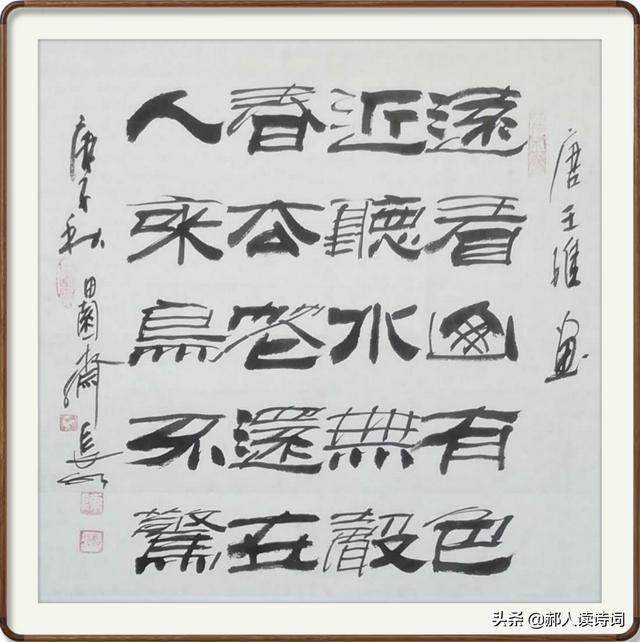 唐王維畫
遠看山有色
近聽水無聲
春去花還在
人來鳥不驚
庚子秋田園齋長
头条 @郝人读诗词